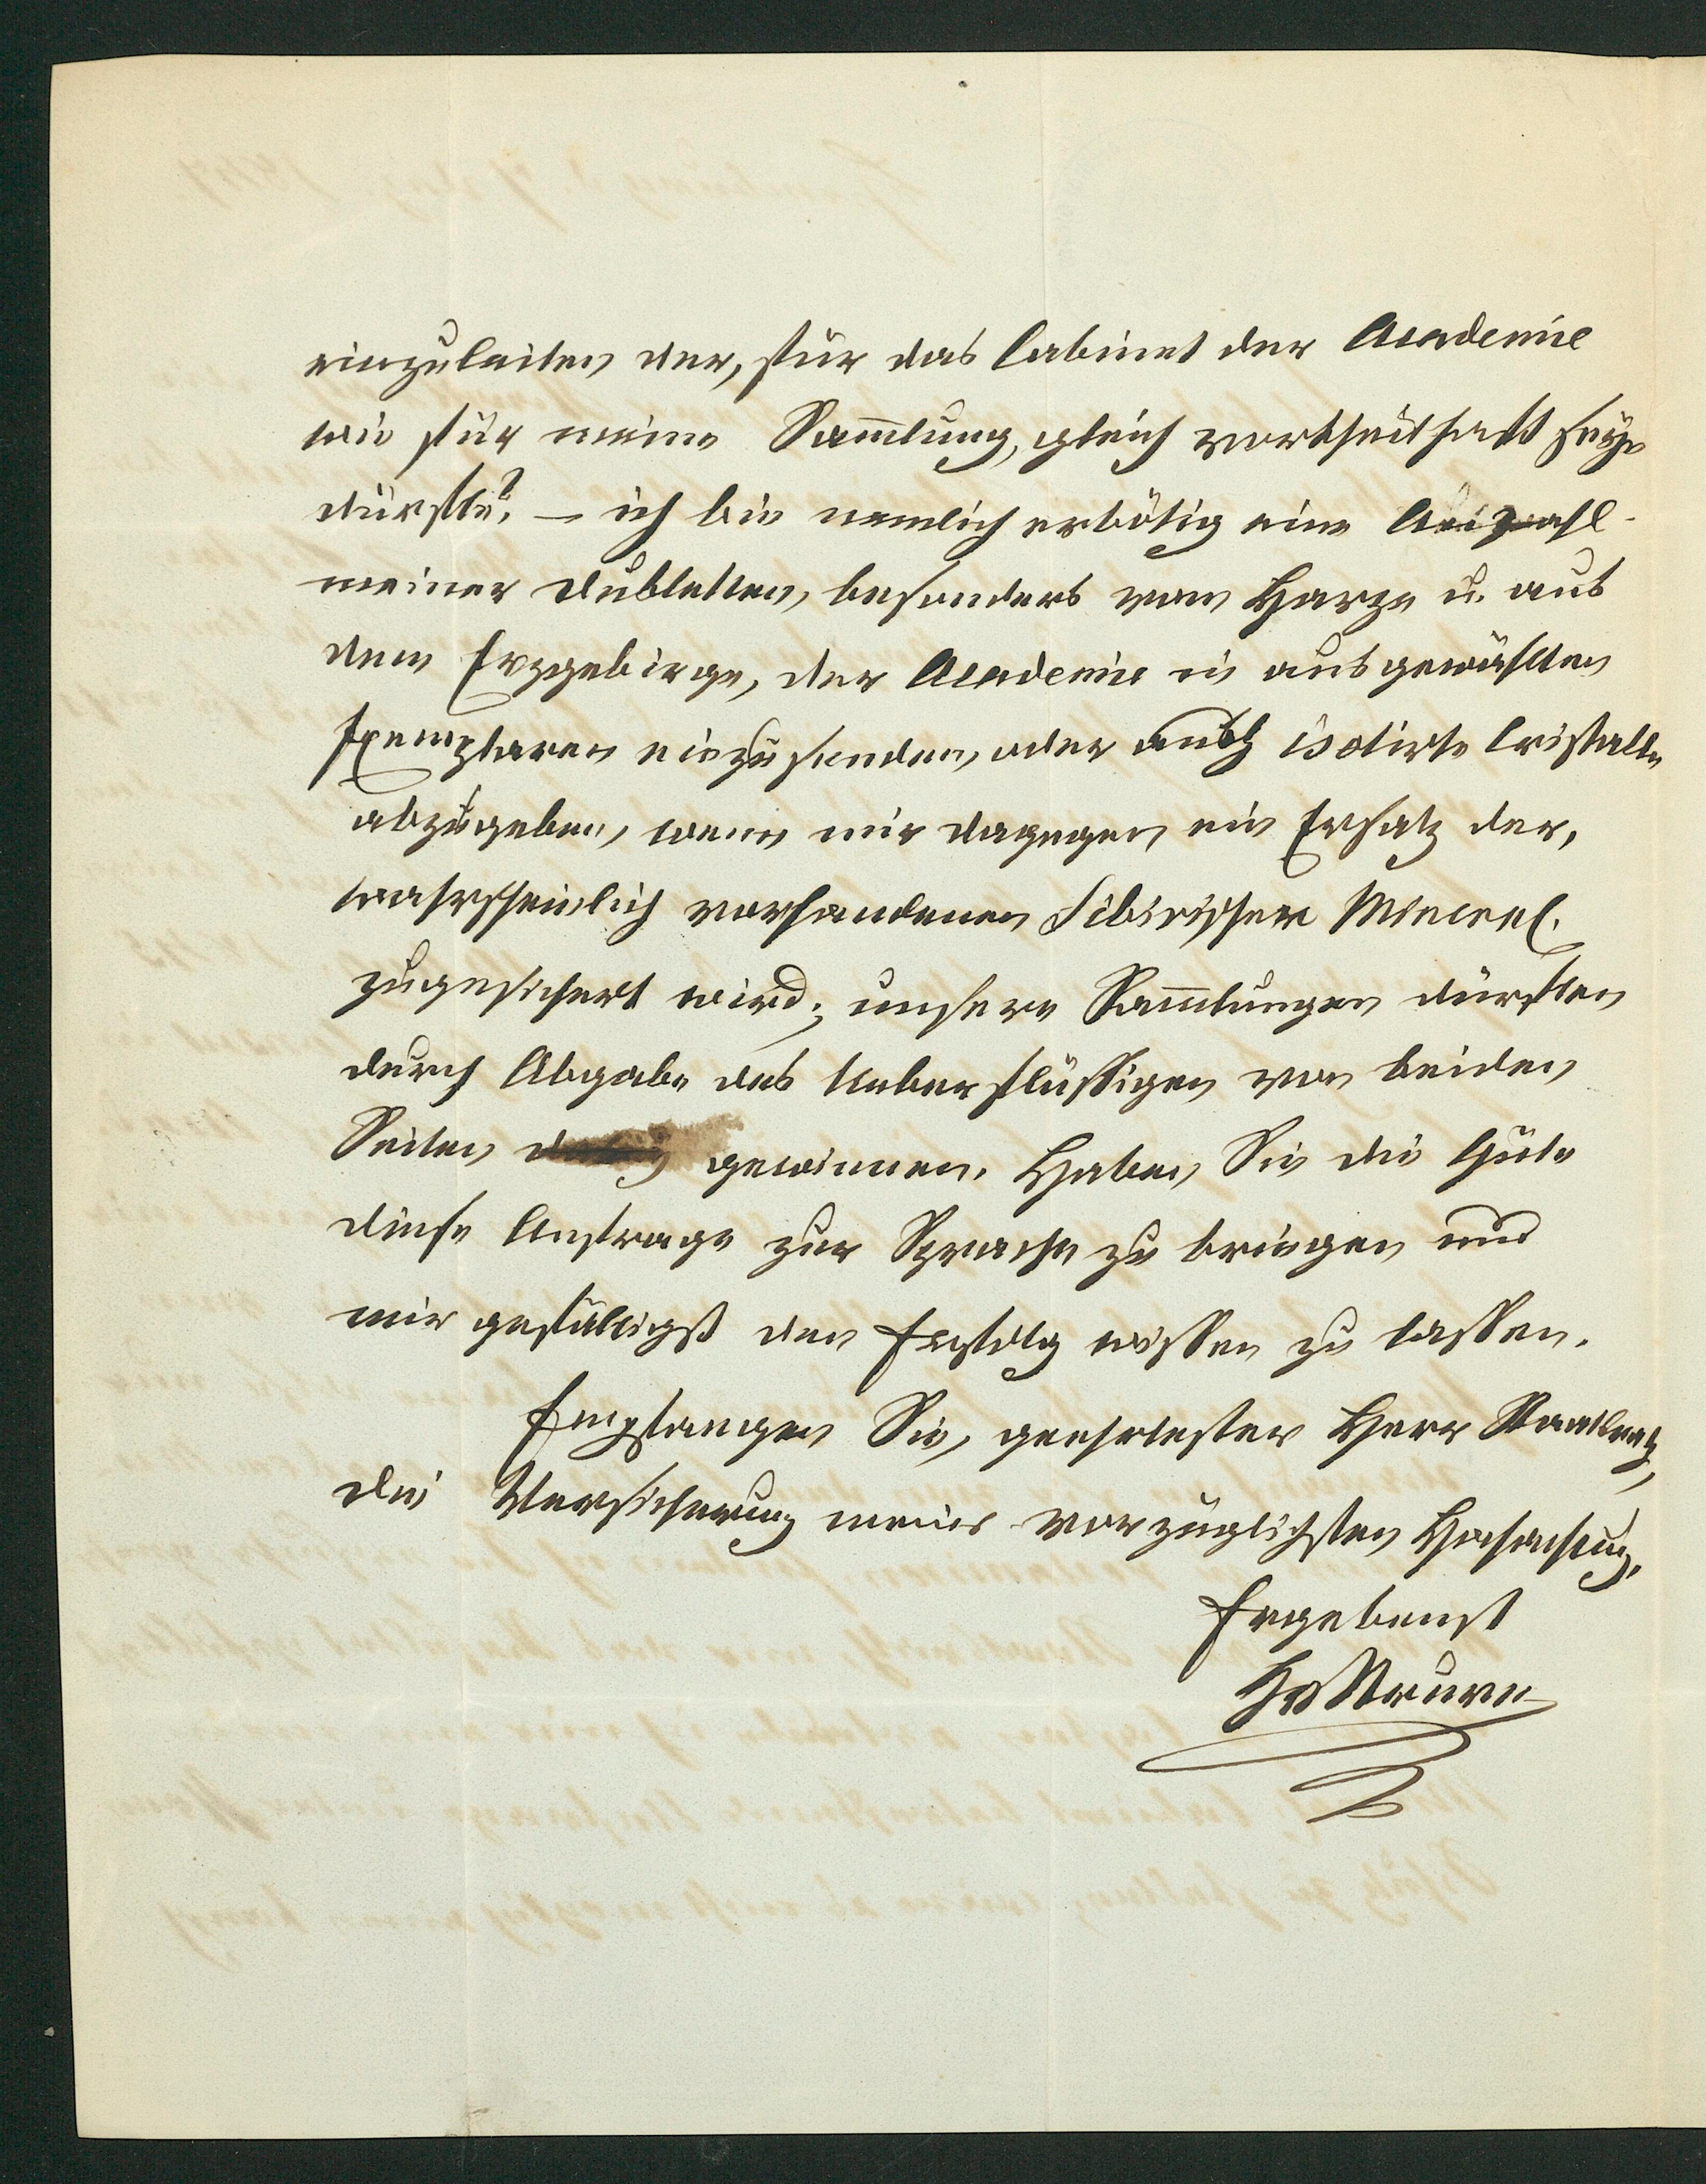 einzuleiten der, für das Cabinet der Academie
wie für meine Sam̅lung, gleich vortheilhaft seÿn
dürfte? — ich bin nemlich erbötig eine Anzahl
meiner Dubletten, besonders vom Harze u. aus
dem Erzgebirge, der Academie in ausgewählten
Exemplaren einzusenden, oder auch isolirte Cristalle
abzugeben, wenn mir dagegen ein Ersatz der,
wahrscheinlich vorhandenen Sibirischen Mineral.
zugesichert wird; unsere Sam̅lungen dürften
durch Abgabe des Ueberflüssigen von beiden
Seiten gewinnen. Haben Sie die Güte
diese Anfrage zur Sprache zu bringen und
mir gefälligst den Erfolg wissen zu lassen.
Empfangen Sie, geehrtester Herr Staatsrath,
die Versicherung meiner vorzüglichsten Hochachtung.
Ergebenst
HvStruve